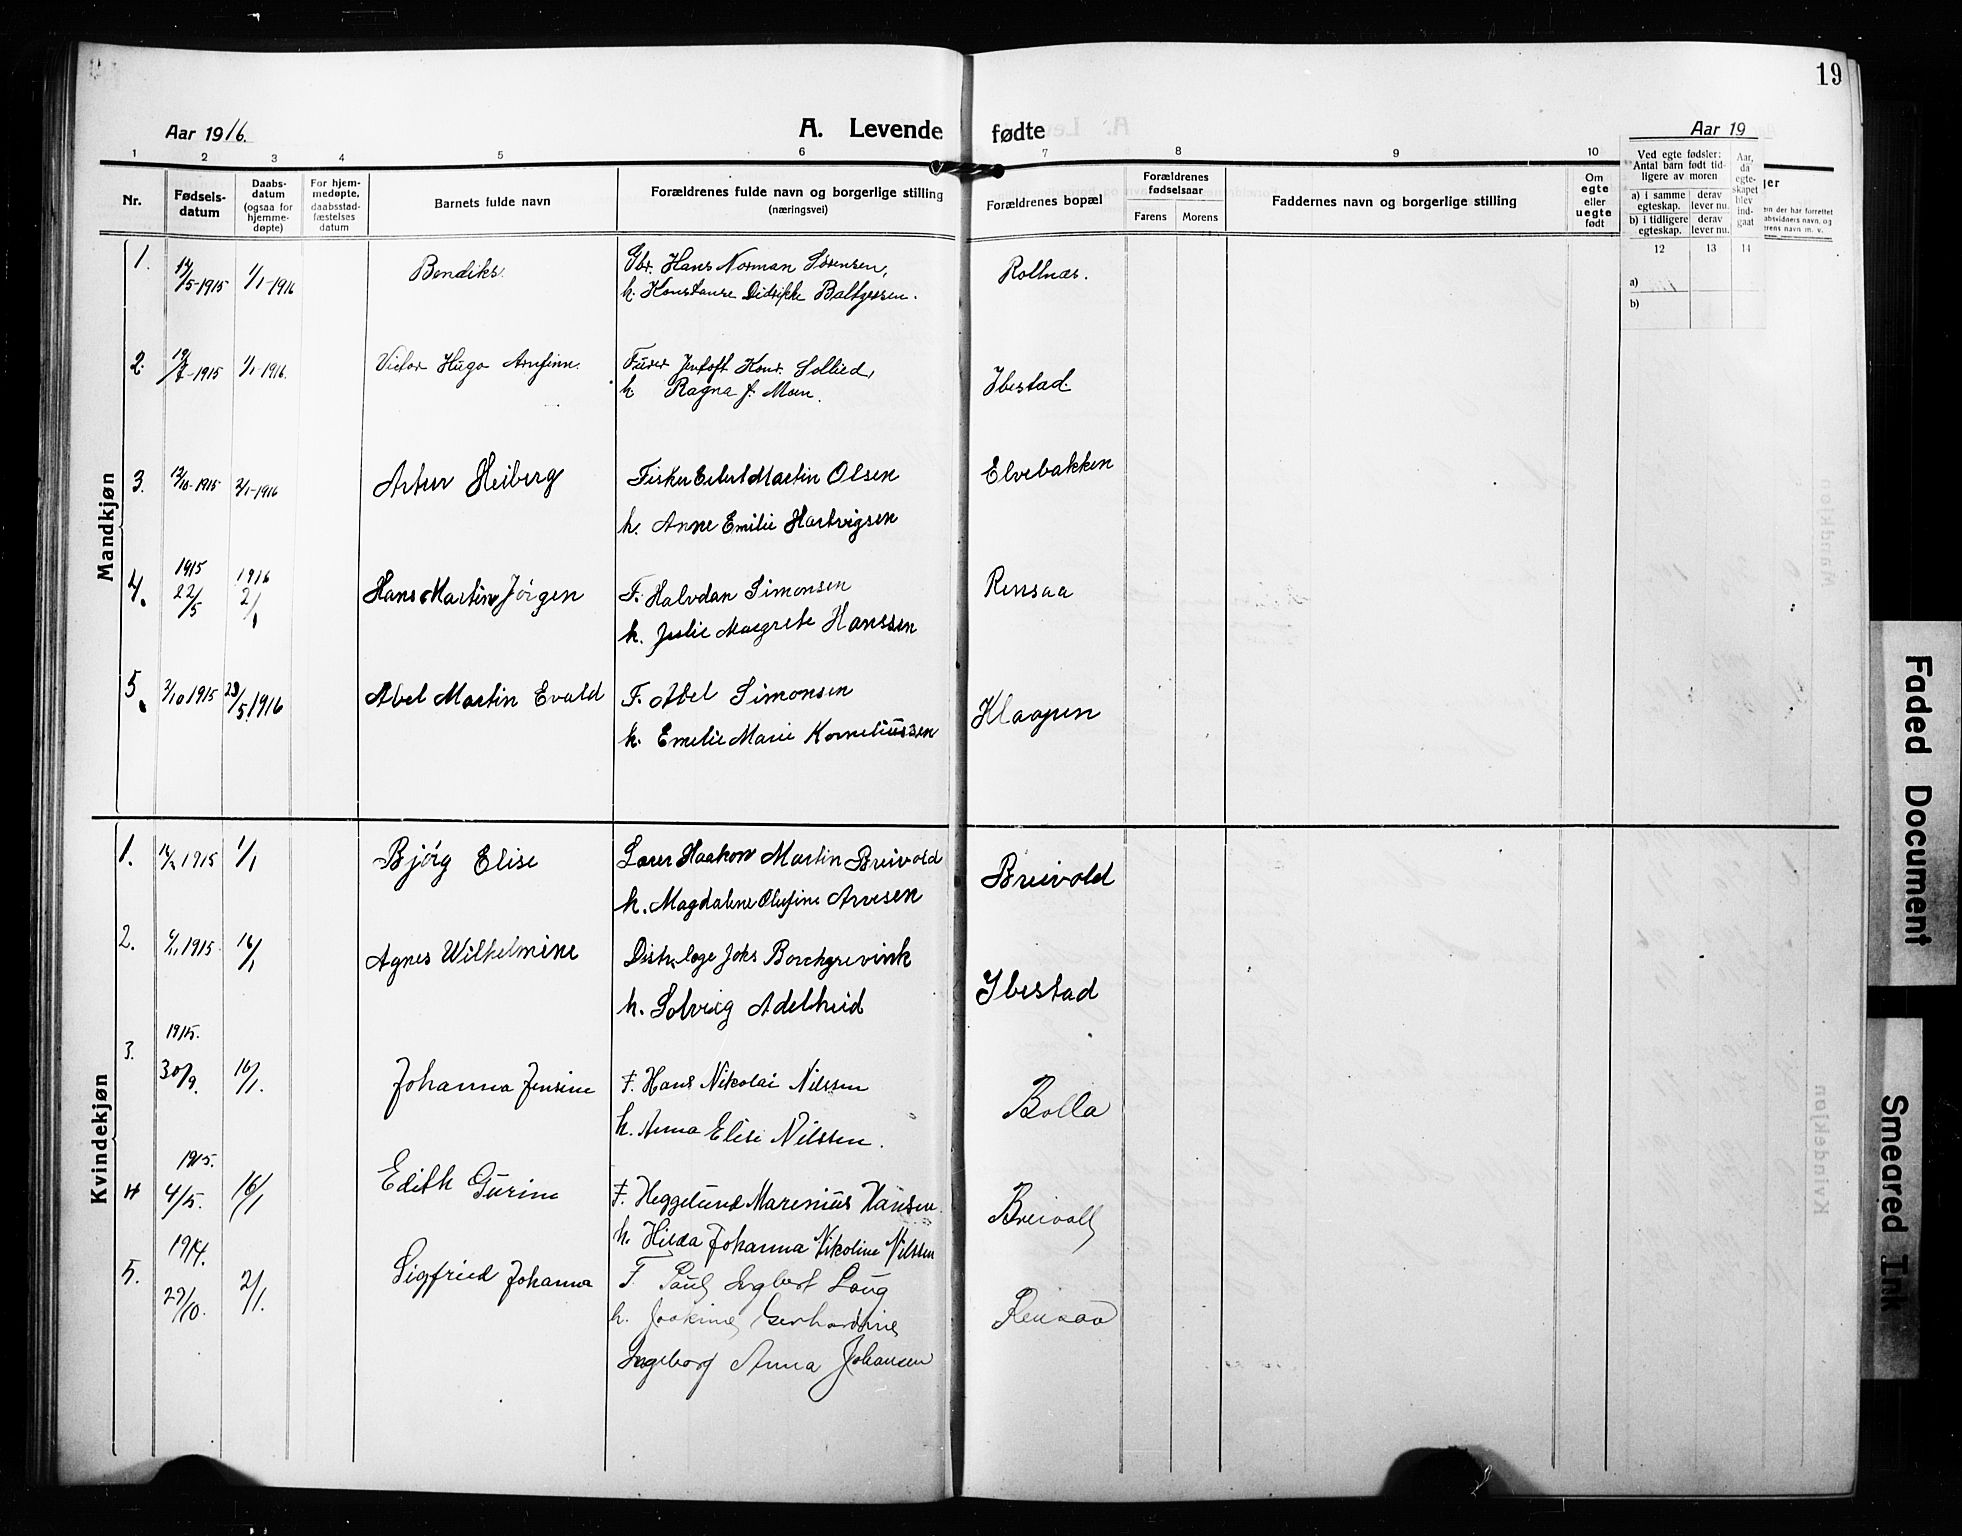 19
Aar 1916.
A. Levende fødte
Aar 19
1 2 3 4 5 6 7 8 9 10
Nr.
Fødsels-datum
Daabs-datum (ogsaa for hjemme-døpte)
For hjem-medøpte, daabsstad-fæstelses datum
Barnets fulde navn
Forældrenes fulde navn og borgerlige stilling (næringsvei)
Forældrenes bopæl
Forældrenes fødselsaar
Farens Morens
Faddernes navn og borgerlige stilling
Om egte eller uegte født
Ved egte fødsler: Antal barn født tid-ligere av moren
a) i samme egteskap. derav lever nu.
b) i tidligere egteskap. derav lever nu.
Aar, da egte-skapet blev ind-gaat
12 13 14
a)
b)
Mandkjøn
1. 14/5-1915 1/1-1916 Bendiks. Gbr. Hans Norman Sørensen, Rollnæs.
h. Konstanse Didrikke Baltzersen.
2. 1/1-1916. Victor Hugo Arnfinn. Jentoft Konr. Sollied, Ibestad.
h. Ragna J. Moen.
3. 12/10-1915 2/1-1916 Artur Heiberg Fisker Edert Martin Olsen Elvebakken
h. Anne Emilie Hartvigsen
4. 1915 22/5 1916 2/1 Hans Martin Jörgen F. Halvdan Simonsen Rensaa
h. Julie Margrete Hanssen
5. 2/10 1915 23/5 1916 Abel Martin Evald F. Abel Simonsen Klaapen
h. Emelie Marie Korneliussen
Kvindekjøn
1. 14/2 1915 1/1 Bjórg Elise Lærer Haakon Martin Breivold Breivold
h. Magdalene Olufine Arvesen
2. 6/11 1915 16/1 Agnes Wilhelmine Distr. læge Johs Borchgrevink Ibestad
h. Solveig Adelheid
3. 1915. 30/9. 16/1. Johanna Jensine F. Hans Nikolai Nilssen Bolla
h. Anna Elise Nilssen.
4 1915. 4/5. 16/1 Edith Gurine F. Heggelund Marenius Hansen Breivoll
h. Hilda Johanna Nikoline Nilssen
5. 1914. 29/10. 2/1. Sigfried Johanna F. Paul Ingbert Laug Rensaa
h. Joakine Gerhardine
Ingeborg Anna Johansen
Faded Document
Smeared Ink